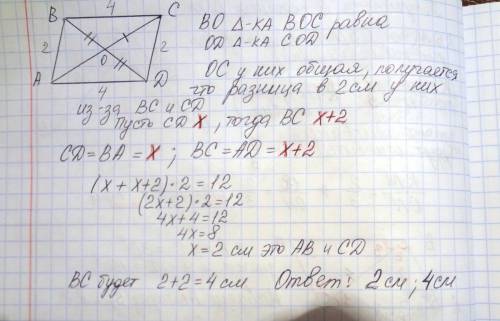 B 4 C
2 O 2
A 4 D
BO Δ-ка BOC равна
OD Δ-ка COD
OC у них общая, получается
что разница в 2 см у них
из-за BC и CD
Пусть CD X, тогда BC X+2
CD=BA=X; BC=AD=X+2
(x+x+2)·2=12
(2x+2)·2=12
4x+4=12
4x=8
x=2 см это AB и CD
BC будет 2+2=4см Ответ: 2см; 4см